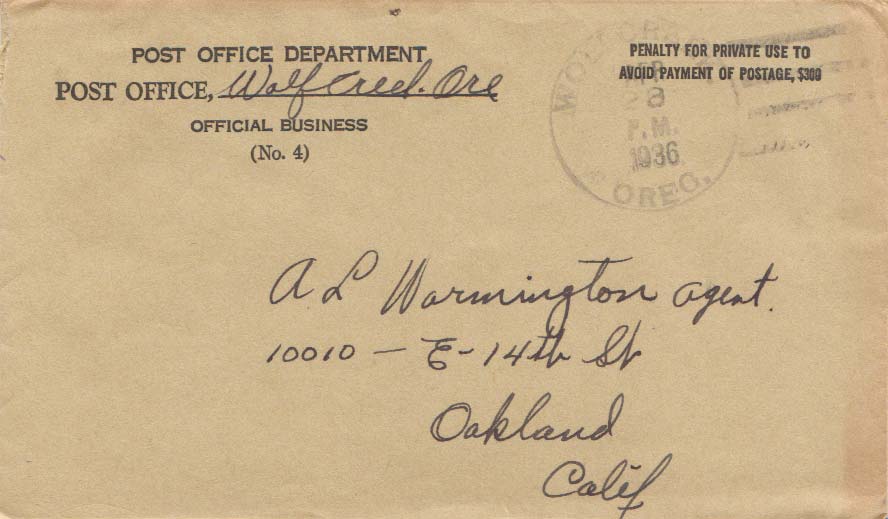 POST OFFICE DEPARTMENT
POST OFFICE, Wolf Creek. Ore
OFFICIAL BUSINESS
(No. 4)
PENALTY FOR PRIVATE USE TO
AVOID PAYMENT OF POSTAGE, $300
APR
28
P.M.
1936
OREG.
A L Warmington agent.
10010 - E-14th St
Oakland
Calif